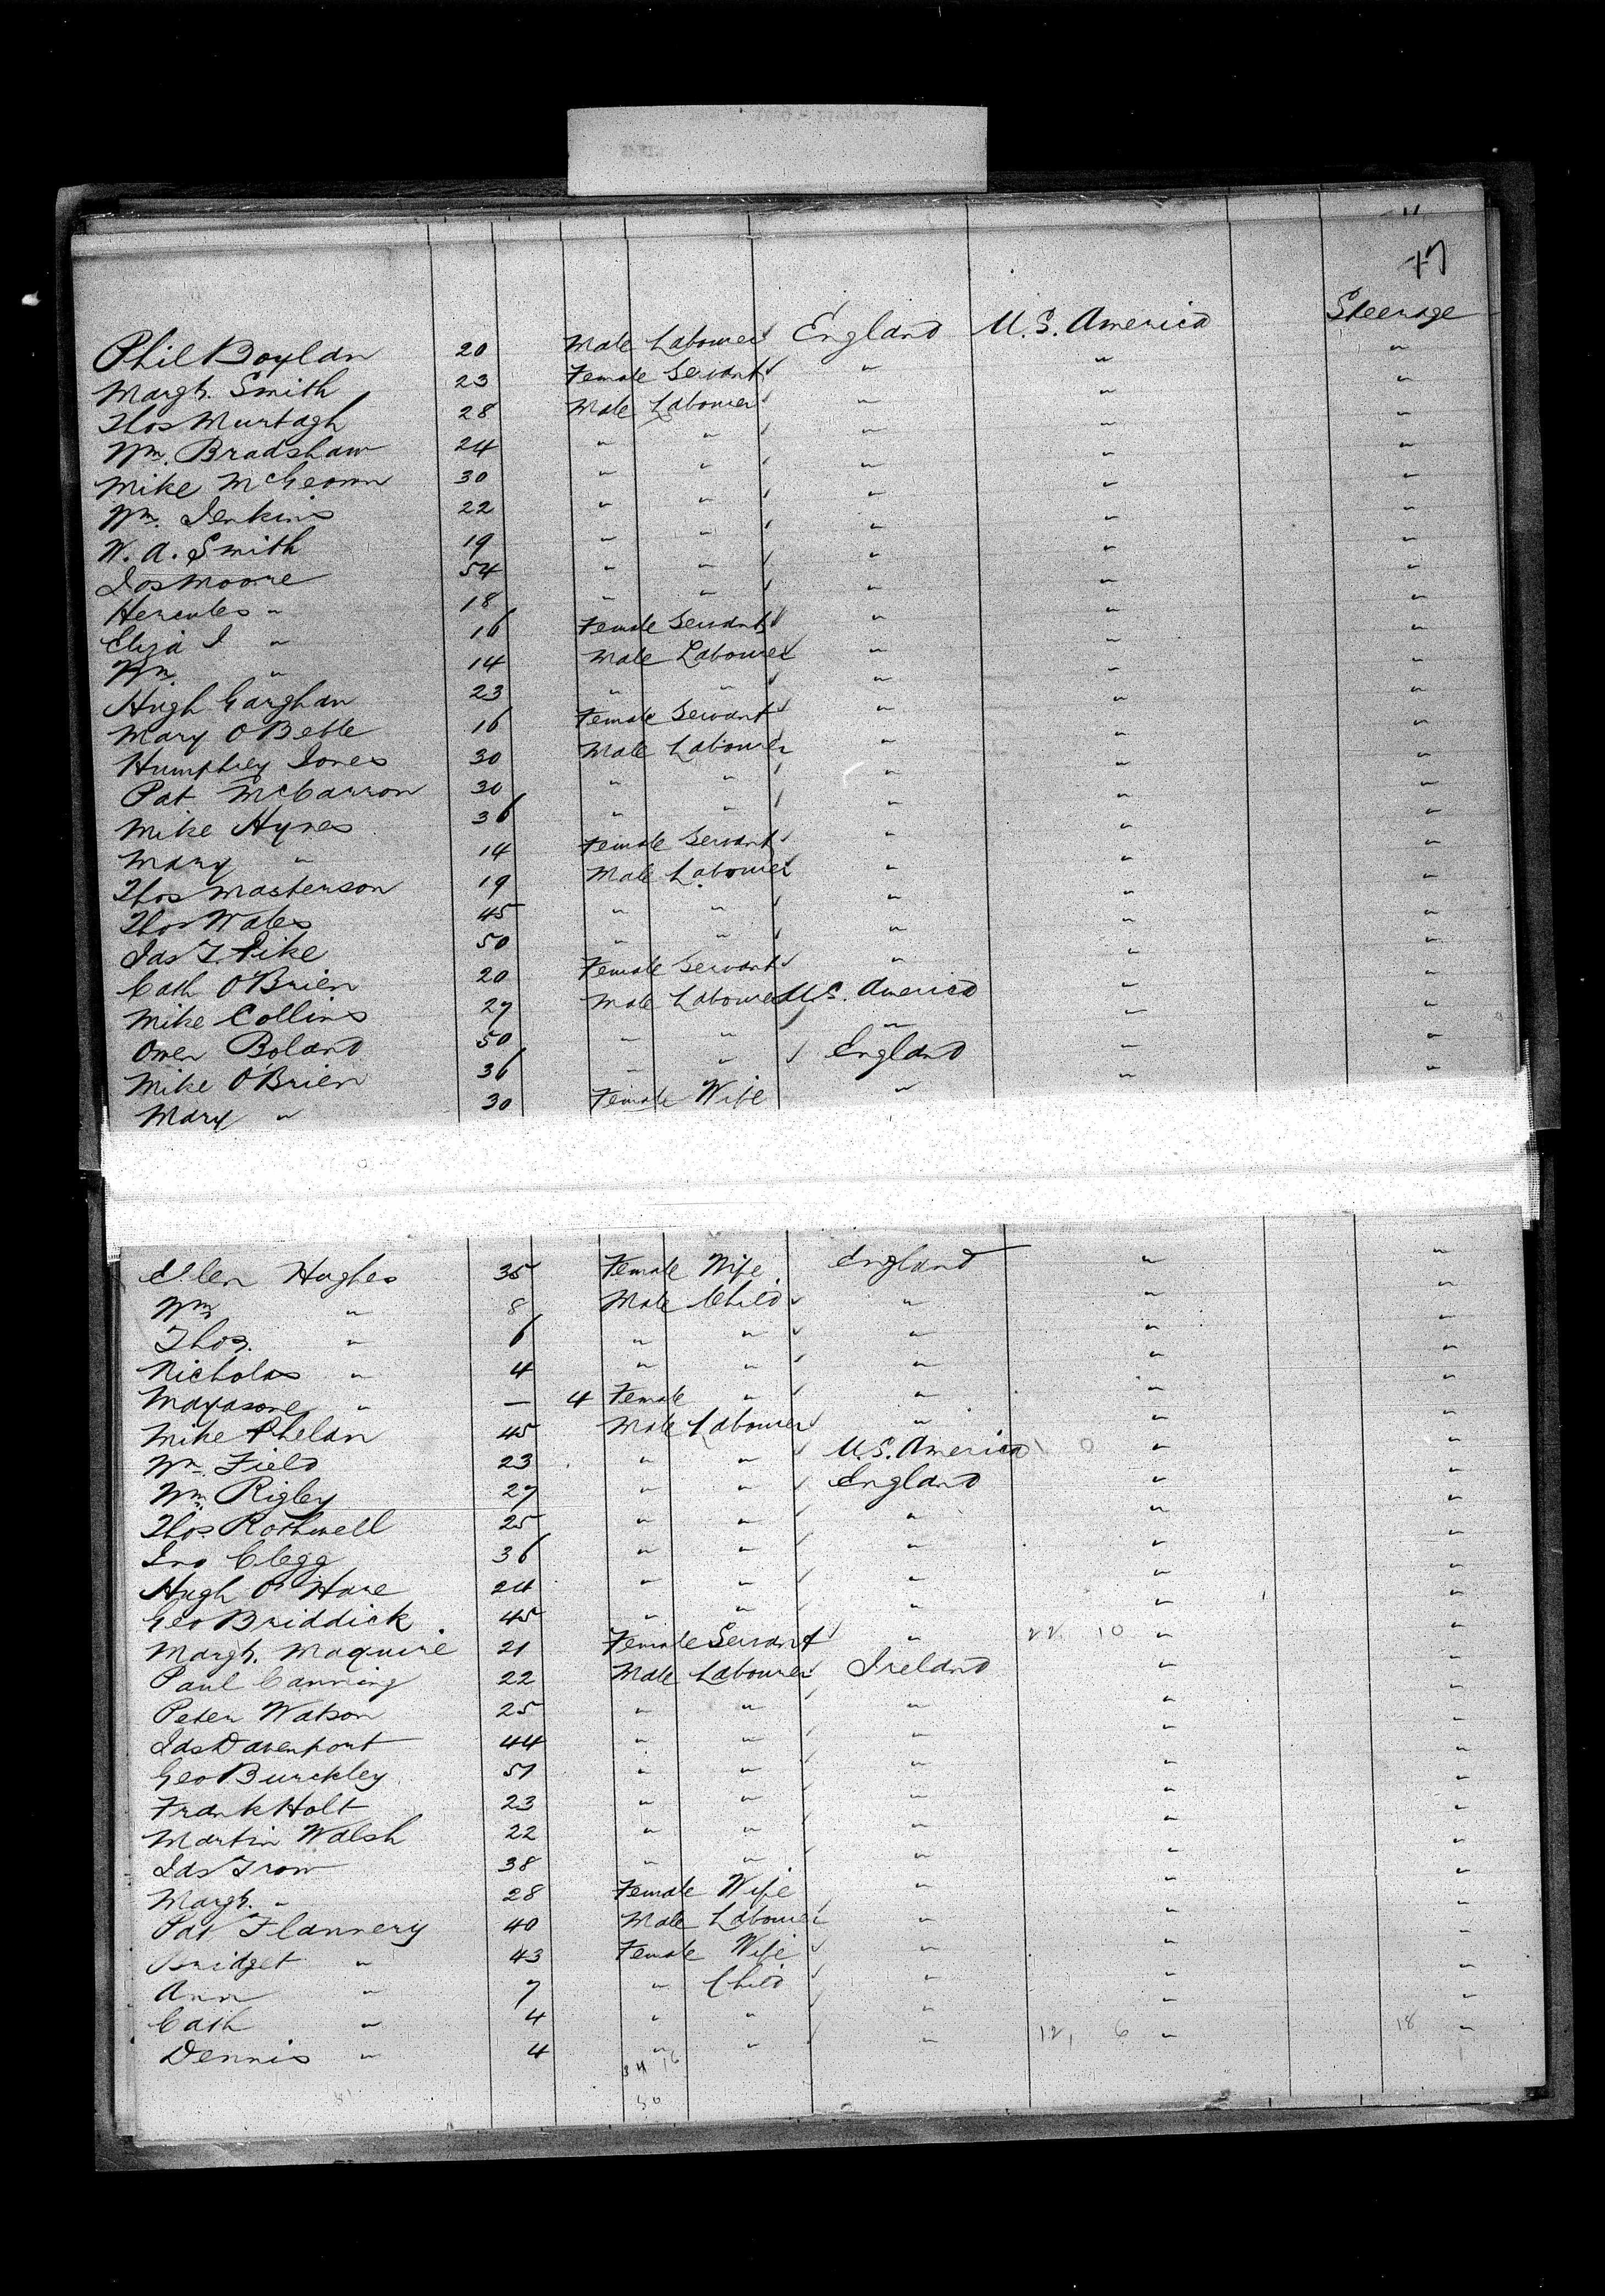 17
Phil Boylan 20 Male Labourer England U.S. America Steerage
Margt. Smith 23 Female Servant " " "
Thos Murtagh 28 Male Labourer " " "
Wm. Bradshaw 24 " " " " "
Mike McGeown 30 " " " " "
Wm. Jenkins 22 " " " " "
W. A. Smith 19 " " " " "
Jos Moore 54 " " " " "
Hercules " 18 " " " " "
Eliza J " 16 Female Servant " " "
Wm. " 14 Male Labourer " " "
Hugh Garghan 23 " " " " "
Mary O Beble 16 Female Servant " " "
Humphrey Jones 30 Male Labourer " " "
Pat McCarron 30 " " " " "
Mike Hynes 36 " " " " "
Mary " 14 Female Servant " " "
Thos Masterson 19 Male Labourer " " "
Thos Wates 45 " " " " "
Jas T. Pike 50 " " " " "
Cath O'Brien 20 Female Servant " " "
Mike Collins 27 Male Labourer U.S. America " "
Owen Boland 50 " " " " "
Mike O'Brien 36 " " England " "
Mary " 30 Female Wife " " "
Ellen Hughes 35 Female Wife England " "
Wm " 8 Male Child " " "
Thos. " 6 " " " " "
Nicholas " 4 " " " " "
" — 4 Female " " " "
Mike Phelan 45 Male Labourer " " "
Wm. Field 23 " " U.S. America " "
Wm. Rigley 27 " " England " "
Thos. Rothwell 25 " " " " "
Jno Clegg 36 " " " " "
Hugh O'Hare 24 " " " " "
Geo Briddick 45 " " " " "
Margt. Maquire 21 Female Servant " 22 10 " "
Paul Canning 22 Male Labourer Ireland " "
Peter Watson 25 " " " " "
Jas Davenport 44 " " " " "
Geo Burckley 51 " " " " "
Frank Holt 23 " " " " "
Martin Walsh 22 " " " " "
Jas Trow 38 " " " " "
Margt. " 28 Female Wife " " "
Pat Flannery 40 Male Labourer " " "
Bridget " 43 Female Wife " " "
Ann " 7 " Child " " "
Cath " 4 " " " " "
Dennis " 4 " " " 12, 6 " 18 "
34 16
50